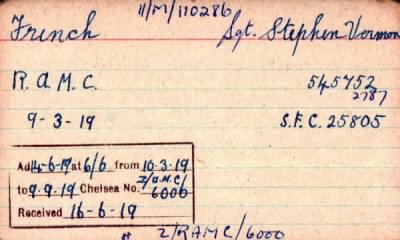 11/M/110286
French Sgt. Stephen Vernon
R.A.M.C. 545752
2787
9-3-19 S.F.C. 25805
Ad 14-6-19 at 6/6 from 10.3.19
2/a.M.C/
to 9.9.19 Chelsea No. 6000
Received 16-6-19
" 2/RAMC/6000